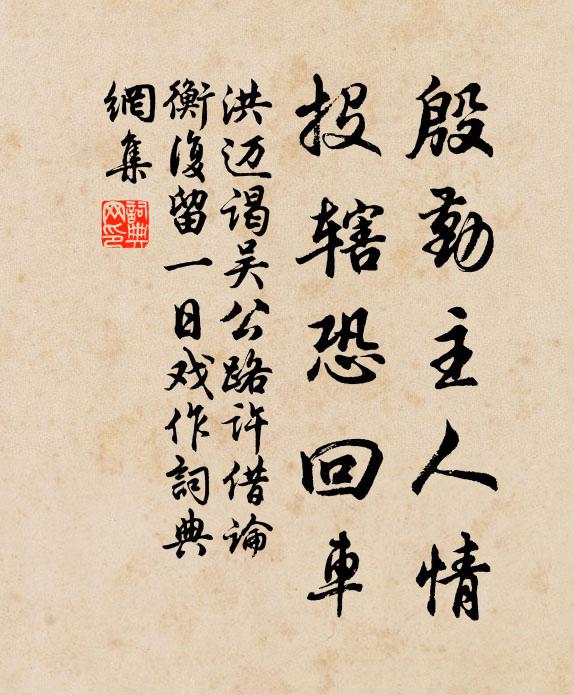 殷勤主人情
投辖恐回車
洪迈谒吴公路许借論
衡復留一日戏作詞典
網集
詞典
网印